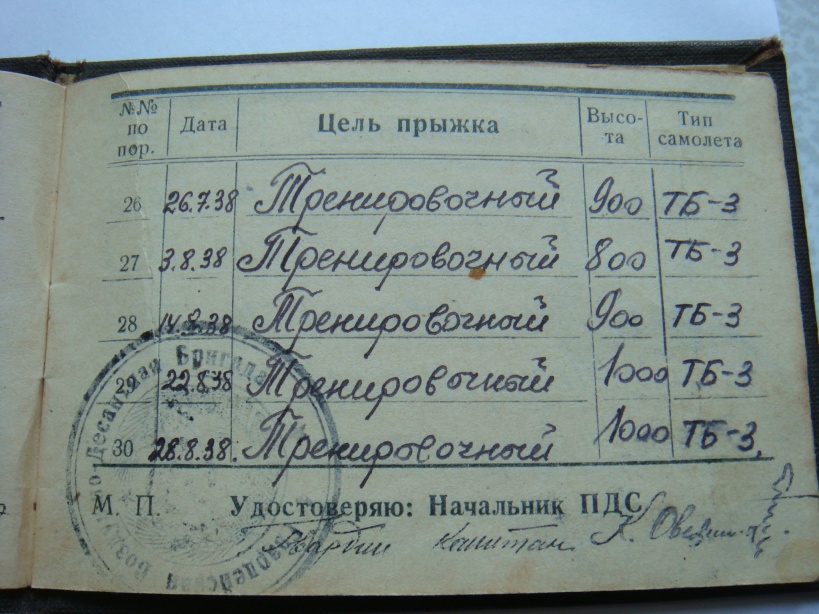 №№ по пор. Дата Цель прыжка Высо- та Тип самолета
26 26.7.38 Тренировочный 900 ТБ-3
27 3.8.38 Тренировочный 800 ТБ-3
28 14.8.38 Тренировочный 900 ТБ-3
29 22.8.38 Тренировочный 1000 ТБ-3
30 28.8.38. Тренировочный 1000 ТБ-3.
М. П. Удостоверяю: Начальник ПДС
Гвардии Капитан К.
Десантная Бригада